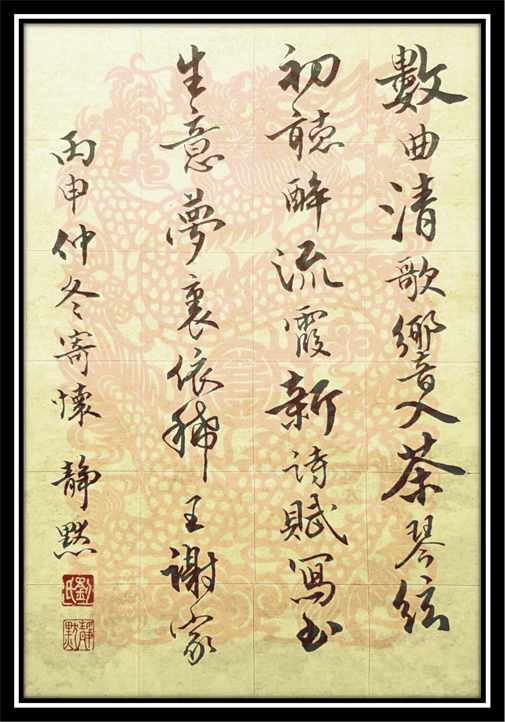 數曲清歌響入茶琴絃
初聽醉流霞新詩賦寫出
生意夢裏依稀王謝家
丙申仲冬寄懷 靜黙
劉氏
靜默